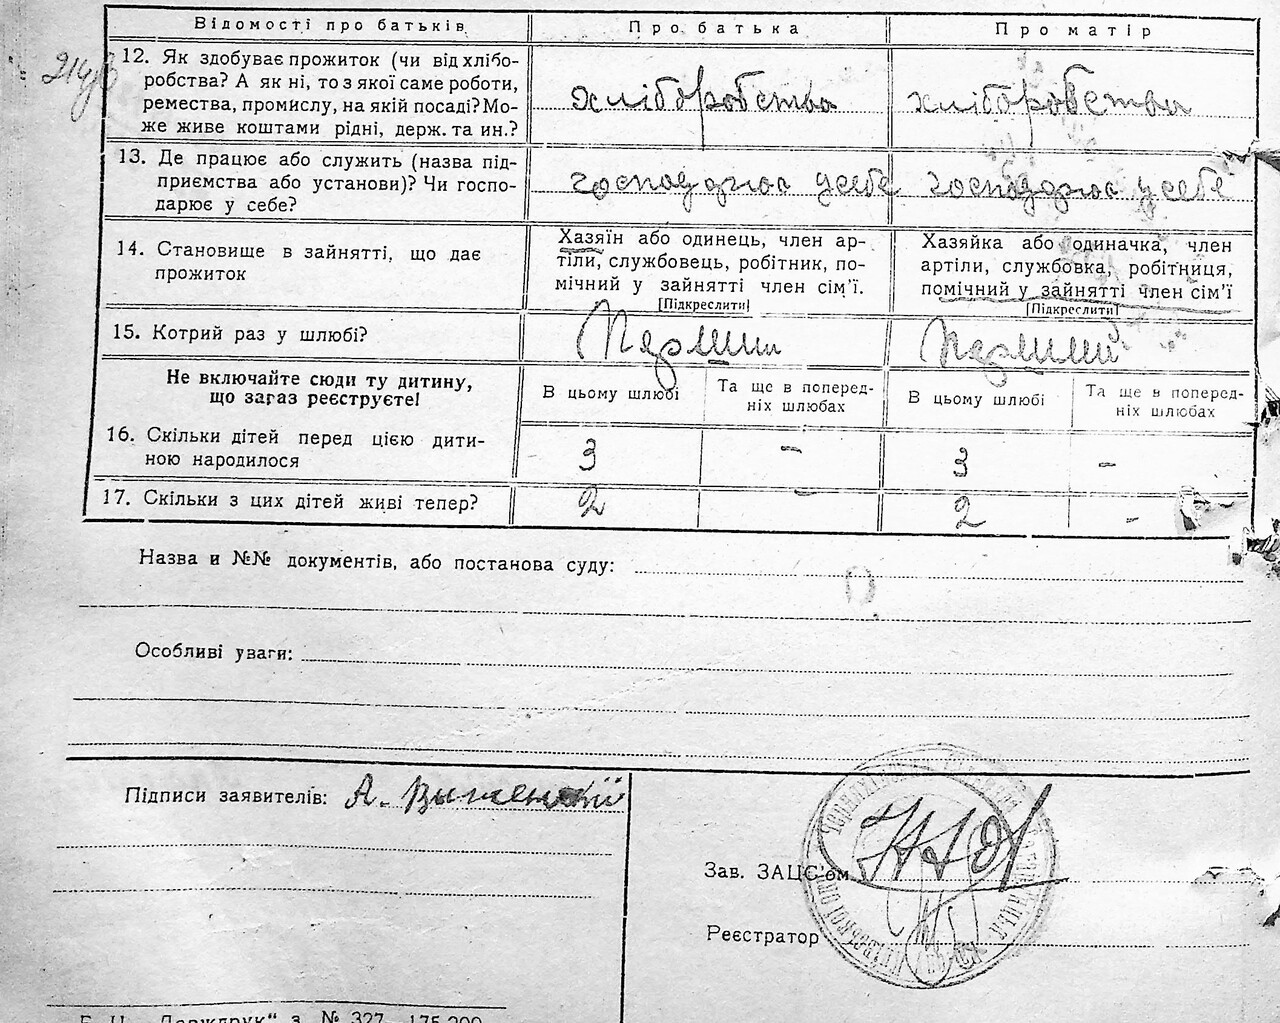 Відомості про батьків Про батька Про матір
12. Як здобуває прожиток (чи від хлібо-
робства? А як ні, то з якої саме роботи,
ремества, промислу, на якій посаді? Мо-
же живе коштами рідні, держ. та ин.?
хліборобства хліборобства
13. Де працює або служить (назва під-
приємства або установи)? Чи госпо-
дарює у себе?
господарює у себе господарює у себе
14. Становище в зайнятті, що дає
прожиток
Хазяїн або одинець, член ар-
тіли, службовець, робітник, по-
мічний у зайнятті член сім'ї.
[Підкреслити]
Хазяйка або одиначка, член
артіли, службовка, робітниця,
помічний у зайнятті член сім'ї
[Підкреслити]
15. Котрий раз у шлюбі? Перший Перший
Не включайте сюди ту дитину,
що загаз реєструєте!
В цьому шлюбі
Та ще в поперед-
ніх шлюбах
В цьому шлюбі
Та ще в поперед-
ніх шлюбах
16. Скільки дітей перед цією дити-
ною народилося
3 – 3 –
17. Скільки з цих дітей живі тепер? 2 – 2 –
Назва и №№ документів, або постанова суду:
Особливі уваги:
Підписи заявителів: А.
Зав. ЗАЦС'ом
Реєстратор
"Держдрук" з. № 327 175.200